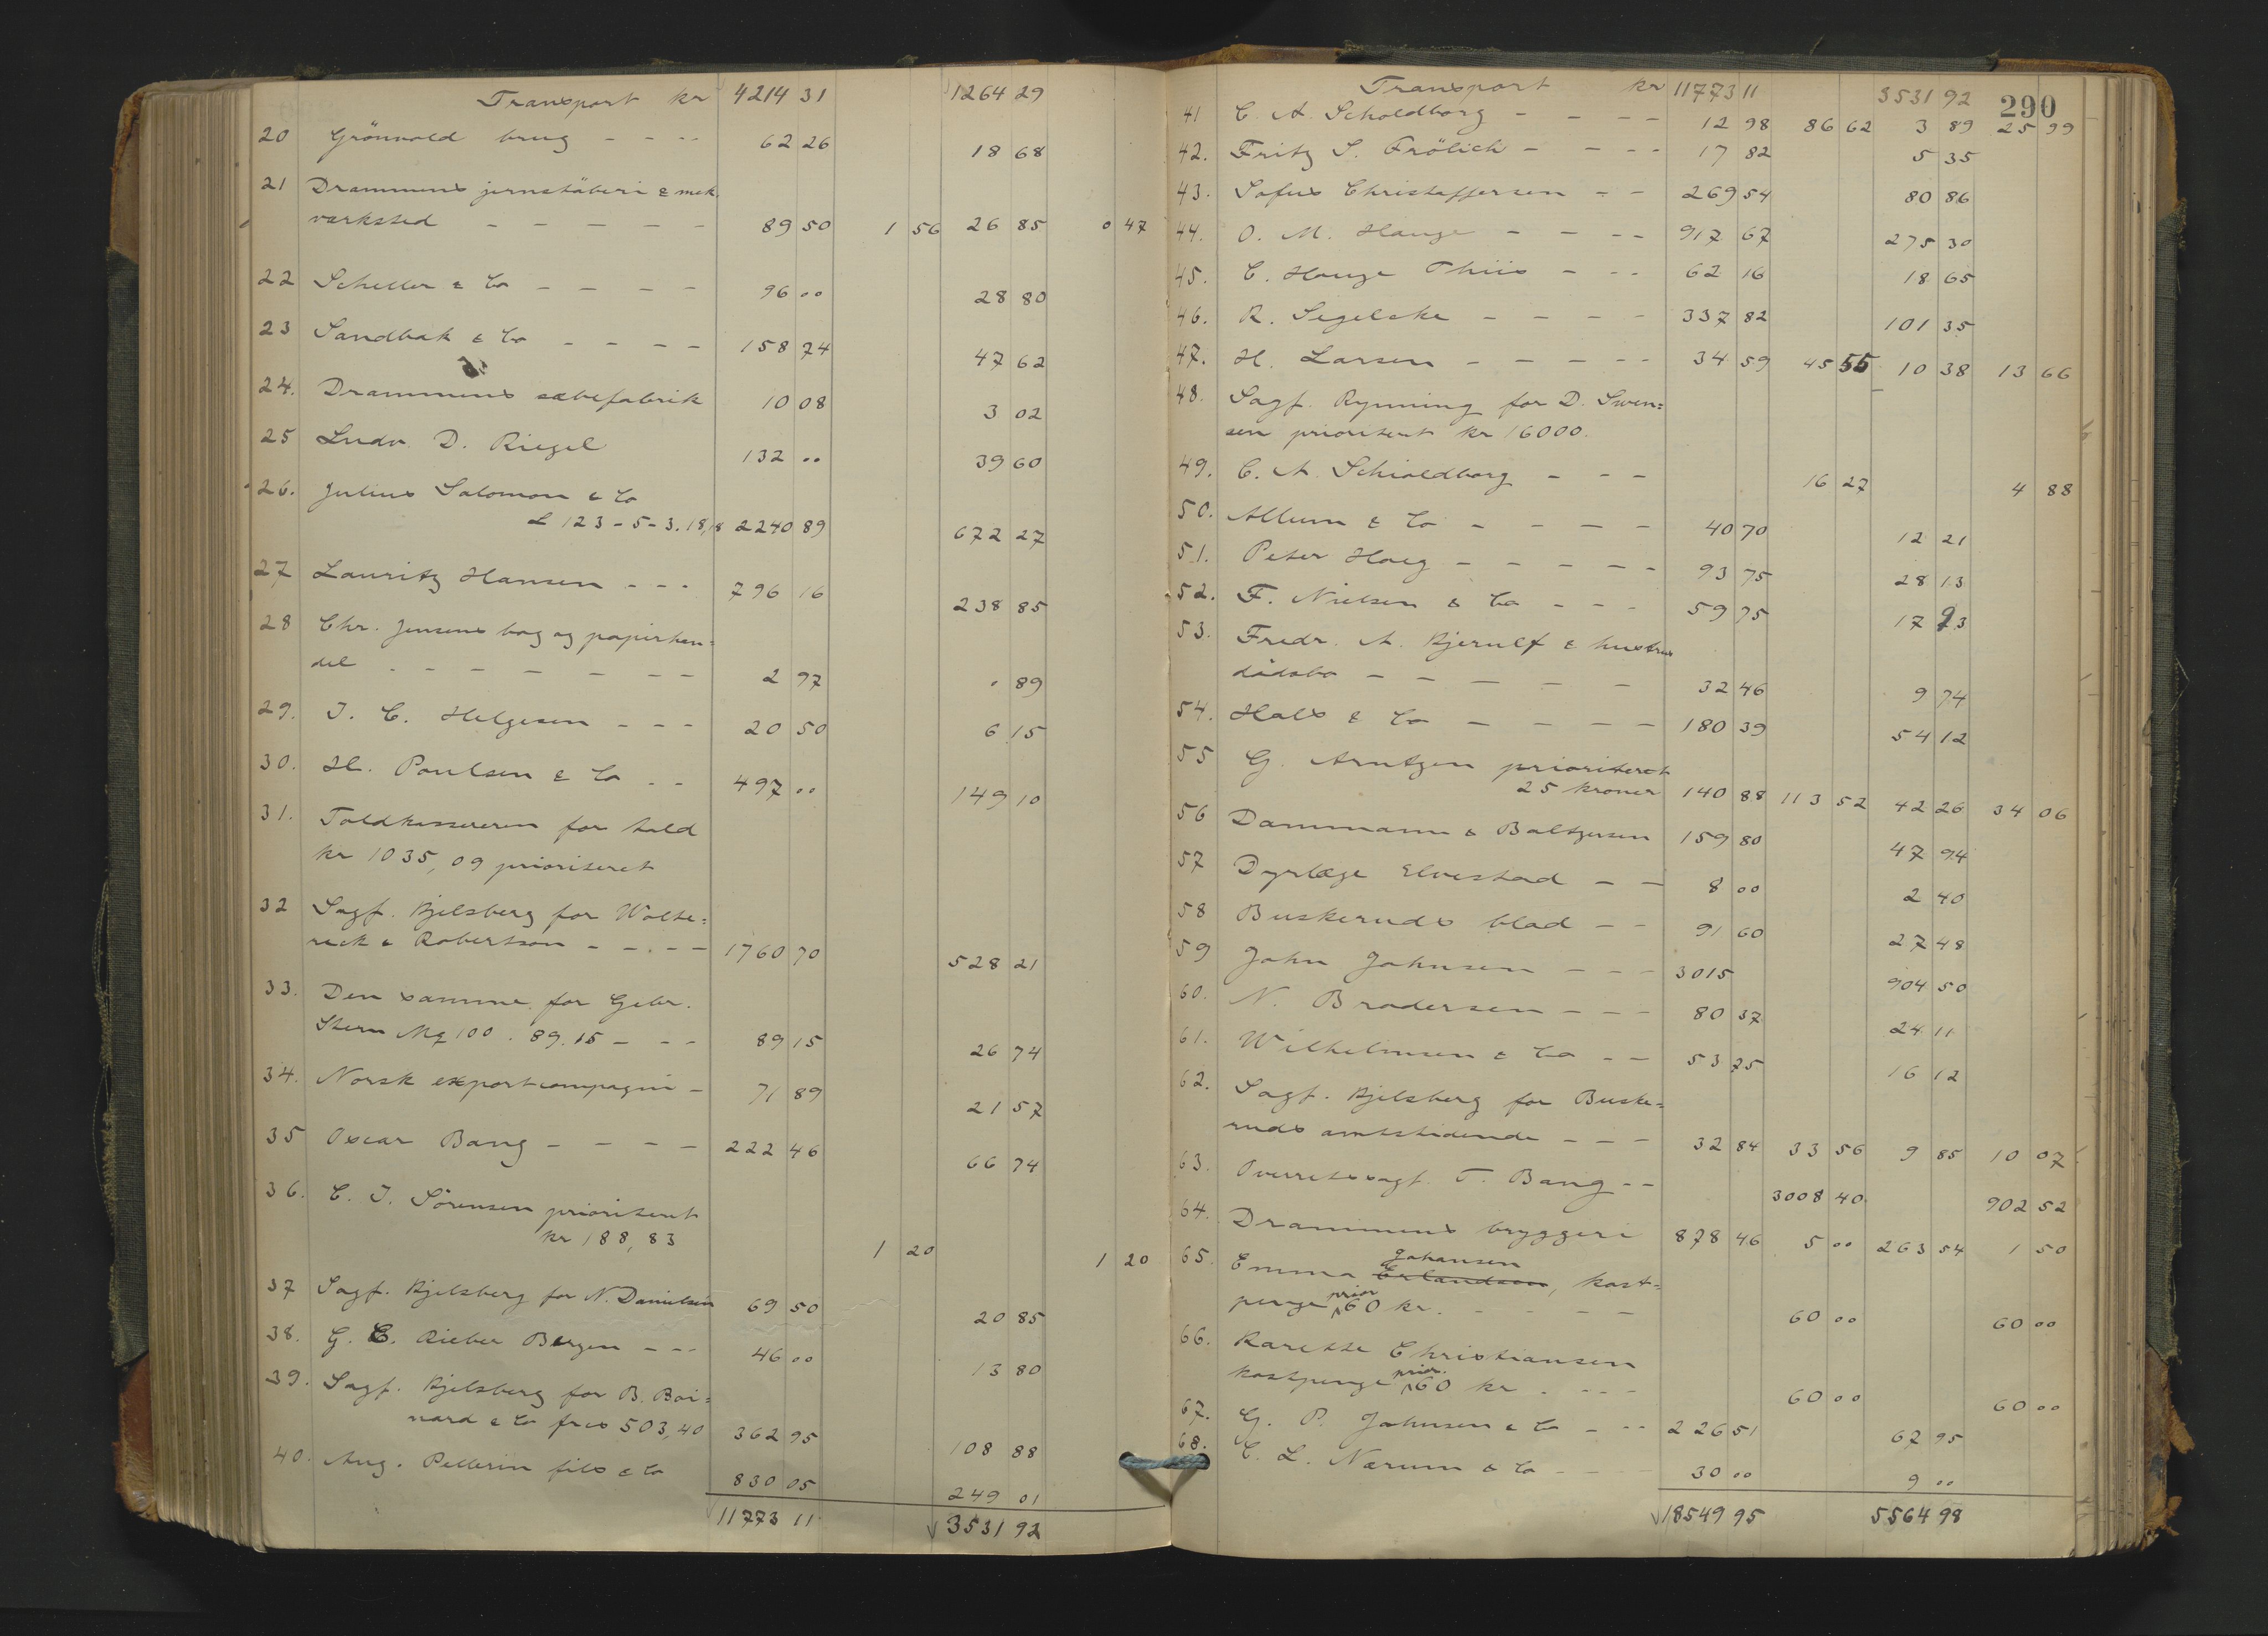 Transport kr 4214 31 1264 29
20 Grönvold brug - - - - 62 26 18 68
21 Drammens jernstöberi & mek.
værksted - - - - - 89 50 1 56 26 85 0 47
22 Scheller & Co - - - - 96 00 28 80
23 Sandbak & Co - - - - 158 74 47 62
24. Drammens sæbefabrik 10 08 3 02
25 Ludv. D. Riegel 132 00 39 60
26. Julius Salomon & Co
£ 123-5-3. 18,18 2240 89 672 27
27 Lauritz Hansen - - - 796 16 238 85
28 Chr. Jensens bog og papirhan=
del - - - - - - - 2 97 0 89
29. J. C. Helgesen - - - 20 50 6 15
30. H. Poulsen & Co - - 497 00 149 10
31. Toldkassereren for told
kr 1035,09 prioriteret
32 Sagf. Kjelsberg for Wolte=
reck & Robertson - - - - 1760 70 528 21
33. Den samme for Gebr.
Stern Mk 100. 89.15 - - - 89 15 26 74
34. Norsk exportcompagni - 71 89 21 57
35 Oscar Bang - - - - 222 46 66 74
36. C. J. Sörensen prioriteret
kr 188,83 1 20 1 20
37 Sagf. Kjelsberg for N. Danielsen 69 50 20 85
38. G. C. Rieber Bergen - - - 46 00 13 80
39. Sagf. Kjelsberg for B. Boi=
nard & Co frcs 503,40 362 95 108 88
40. Aug. Pellerin fils & Co 830 05 249 01
11773 11 3531 92
290
Transport kr 11773 11 3531 92
41 C. A. Scholdborg - - - - 12 98 86 62 3 89 25 99
42. Fritz S. Frölich - - - - 17 82 5 35
43. Sofus Christoffersen - - 269 54 80 86
44. O. M. Hauge - - - - 917 67 275 30
45. C. Hauge Thiis - - - 62 16 18 65
46. R. Segelcke - - - - 337 82 101 35
47. H. Larsen - - - - - 34 59 45 55 10 38 13 66
48. Sagf. Rynning for D. Swen=
sen prioriteret kr 16000.
49. C. A. Schioldborg - - - 16 27 4 88
50. Allum & Co - - - - 40 70 12 21
51. Peter Hoeg - - - - - 93 75 28 13
52. F. Nielsen & Co - - - 59 75 17 93
53. Fredr. A. Kjerulf & hustrus
dödsbo - - - - - 32 46 9 74
54. Hals & Co - - - - 180 39 54 12
55 G. Arntzen prioriteret
25 kroner 140 88 113 52 42 26 34 06
56 Dammann & Baltzersen 159 80 47 94
57 Dyrlæge Elvestad - - 8 00 2 40
58 Buskeruds blad - - 91 60 27 48
59 John Johnsen - - - 3015 904 50
60. N. Brodersen - - - 80 37 24 11
61. Wilhelmsen & Co - - 53 75 16 12
62. Sagf. Kjelsberg for Buske=
ruds amtstidende - - - 32 84 33 56 9 85 10 07
63. Overretssagf. T. Bang - - 3008 40 902 52
64. Drammens bryggeri 878 46 5 00 263 54 1 50
65. Emma Erlandsen Johansen, kost=
penge prior 60 kr. - - - - 60 00 60 00
66. Karethe Christiansen
kostpenge prior. 60 kr. - - - 60 00 60 00
67. G. P. Johnsen & Co - - - 226 51 67 95
68. C. L. Nærum & Co - - - 30 00 9 00
18549 95 5564 98